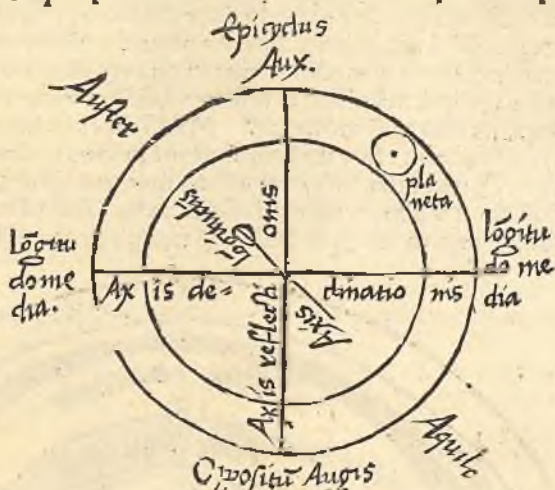 Epicyclus
Aux.
Auster
pla
neta
lōgitu
do me
dia.
lōgitu
do me
dia
Axis
lōgitudis
Ax is de=
clinatio nis
Axis reflecti
onis
Aquilo
Oppositū Augis